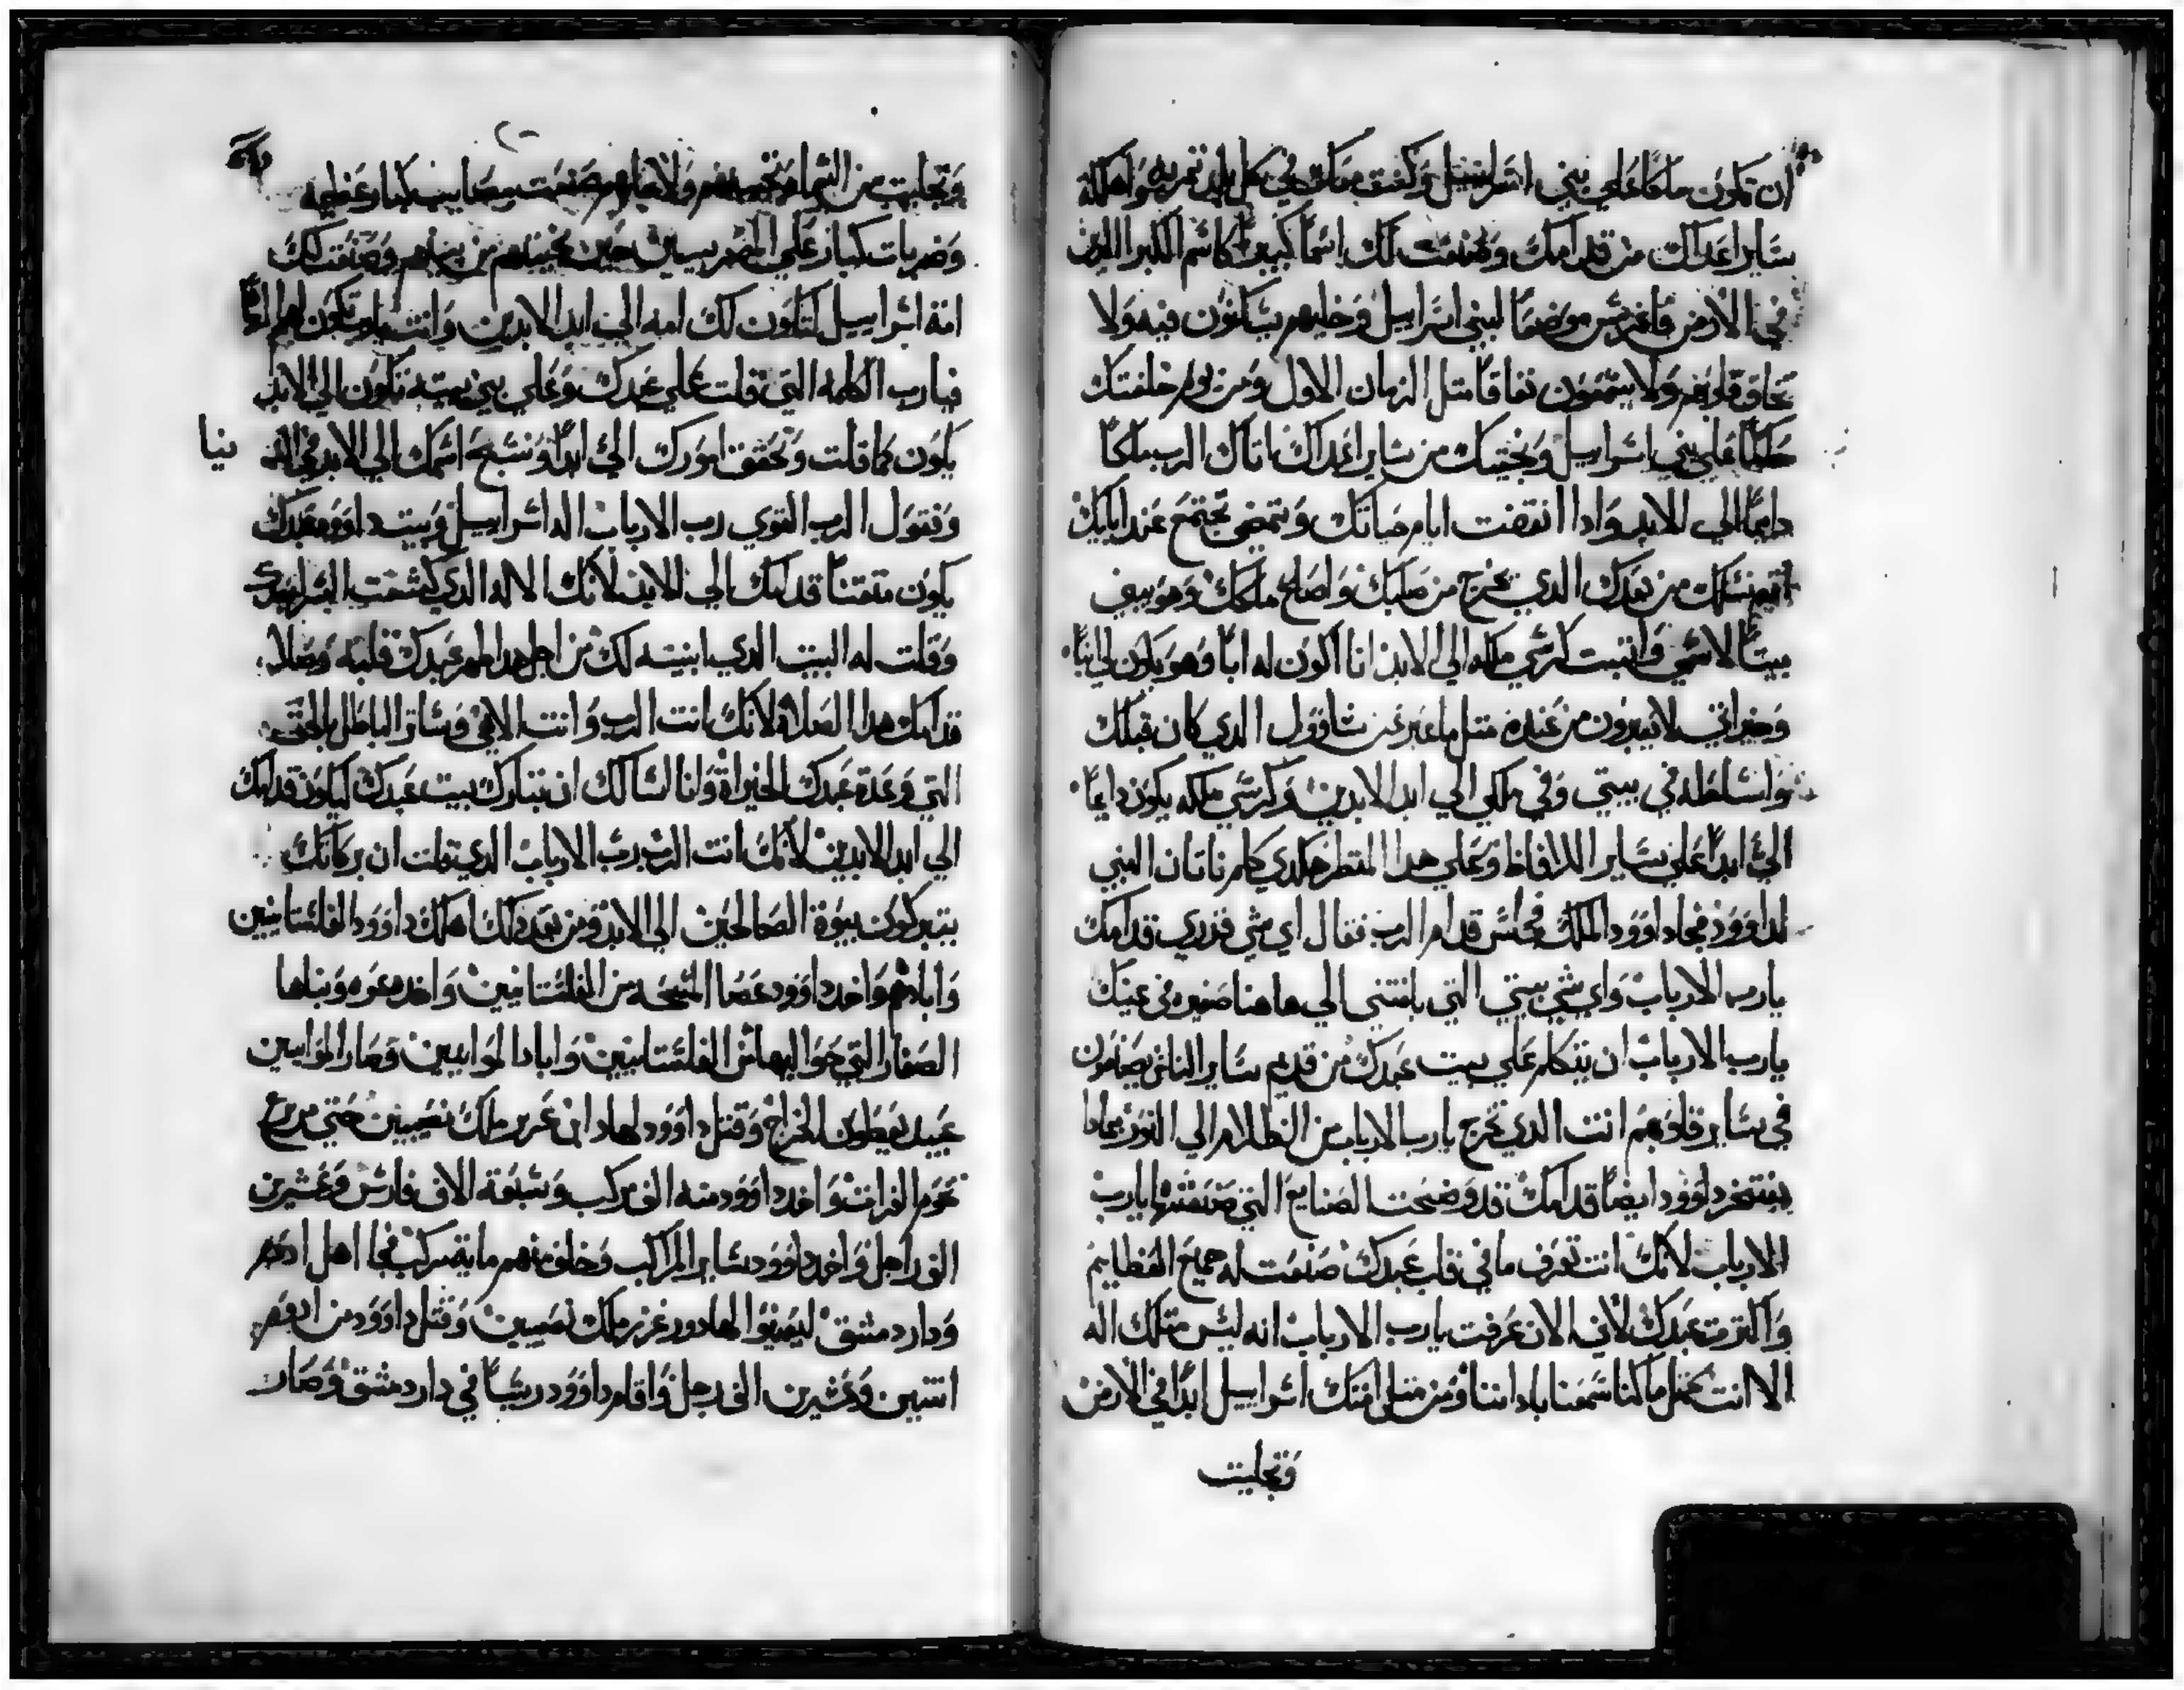 ان تكون ملكا علي بني اسراييل وكنت معك في كل بلد تمر به واهلك
ساير اعداك من قدامك وصنعت لك اسما كبيرا كاسم الكبرا الذين
في الارض فاغرس موضعا لبني اسراييل واخليهم يسكنون فيه ولا
تخاف قلوبهم ولا يسمعون نفاقا متل الزمان الاول ومن يوم خلفتك
حاكما علي بني اسراييل ونجيتك من ساير اعداك اتاك الرب ملكا
دايما الي الابد وادا انقضت ايام حياتك وتمضي تجتمع عند ابايك
اقيم نسلك من بعدك الدي يخرج من صلبك واصلح ملكك وهو يبني
بيتا لاسمي واتبت كرسي ملكه الي الابد انا اكون له ابا وهو يكون لي ابنا
وخيراتي لا يبعدون من عنده متل ما عبر عن شاوول الدي كان قبلك
واسلطه في بيتي وفي ملكي الي ابد الابدين وكرسي ملكه يكون دايما
الي ابدا علي ساير الالفاظ وعلي هدا المنظر هكدي كلم ناتان النبي
لداوود فجا داوود الملك فجلس قدام الرب فقال اي شي قدري قدامك
يا رب الارباب واي شي بيتي التي بلغتني الي هاهنا صغير في عينك
يا رب الارباب ان يتكلم علي بيت عبدك من قديم ساير الناس يصنعون
في ساير قلوبهم انت الدي تخرج يا رب الارباب من الظلام الي النور بمادا
يفتخر داوود ايضا قدامك قد وضحت الصنايع التي صنعتها يا رب
الارباب لانك انت تعرف ما في قلب عبدك صنعت له جميع العظايم
واكترت عبدك لاني الان عرفت يا رب الارباب انه ليس متلك اله
الا انت بكل ما كنا سمعنا باداننا ومن متل امتك اسراييل ابدا في الارض
وتجليت
وتجليت من السما صنعت كبار وعظيمه
وضربات كبار علي المصريين حين نجيتهم من بينهم وصنعت لك
امة اسراييل لتكون لك امه الي ابد الابدين وانت يا رب تكون لهم الها
فيا رب الكلمه التي قلت علي عبدك وعلي بني بيته تكون الي الابد
يكون كما قلت وتحقق امورك الي ابدا ونسبح اسمك الي الابد في الد نيا
ونقول الرب القوي رب الارباب اله اسراييل وبيت داوود عبدك
يكون متقنا قدامك الي الابد لانك الاله الدي كشفت السراير
وقلت له البيت الدي ابنيته لك من اجل هدا طهر عبدك قلبه وصلا
قدامك هدا الصلاة لانك انت الرب وانت الاهي وساتر الباطل بالحق
التي وعدة عبدك الخيراة وانا اسالك ان تبارك بيت عبدك ليكون قدامك
الي ابد الابدين لانك انت الرب رب الارباب الدي قلت ان بركاتك
يتبركون بيوة الصالحين الي الابد ومن بعد دلك اهلك داوود الفلستانيين
وابادهم واخد داوود عصا من الفلستانيين واخد وبناها
الصغار التي حواليها من الفلستانيين وابادا الموابيين وصار الموابيين
عبيد يعطون الخراج وقتل داوود لهاد ابن عربر ملك نصيبين حتي مرج
عوم الفرات واخد داوود منه الف مركب وسبعة الاف فارس وعشرين
الف راجل واخد داوود ساير المراكب وخلف منهم ماية مركب فجا اهل ادوم
ودار دمشق ليعينوا لهادور عزر ملك نصيبين وقتل داوود من ادوم
اتنين وعشرين الف رجل واقام داوود ريسا في دار دمشق وصار